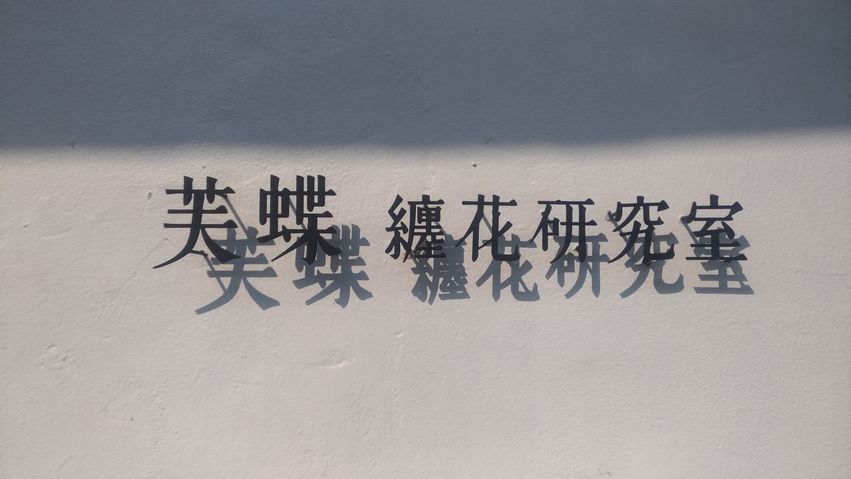 芙蝶 纏花研究室